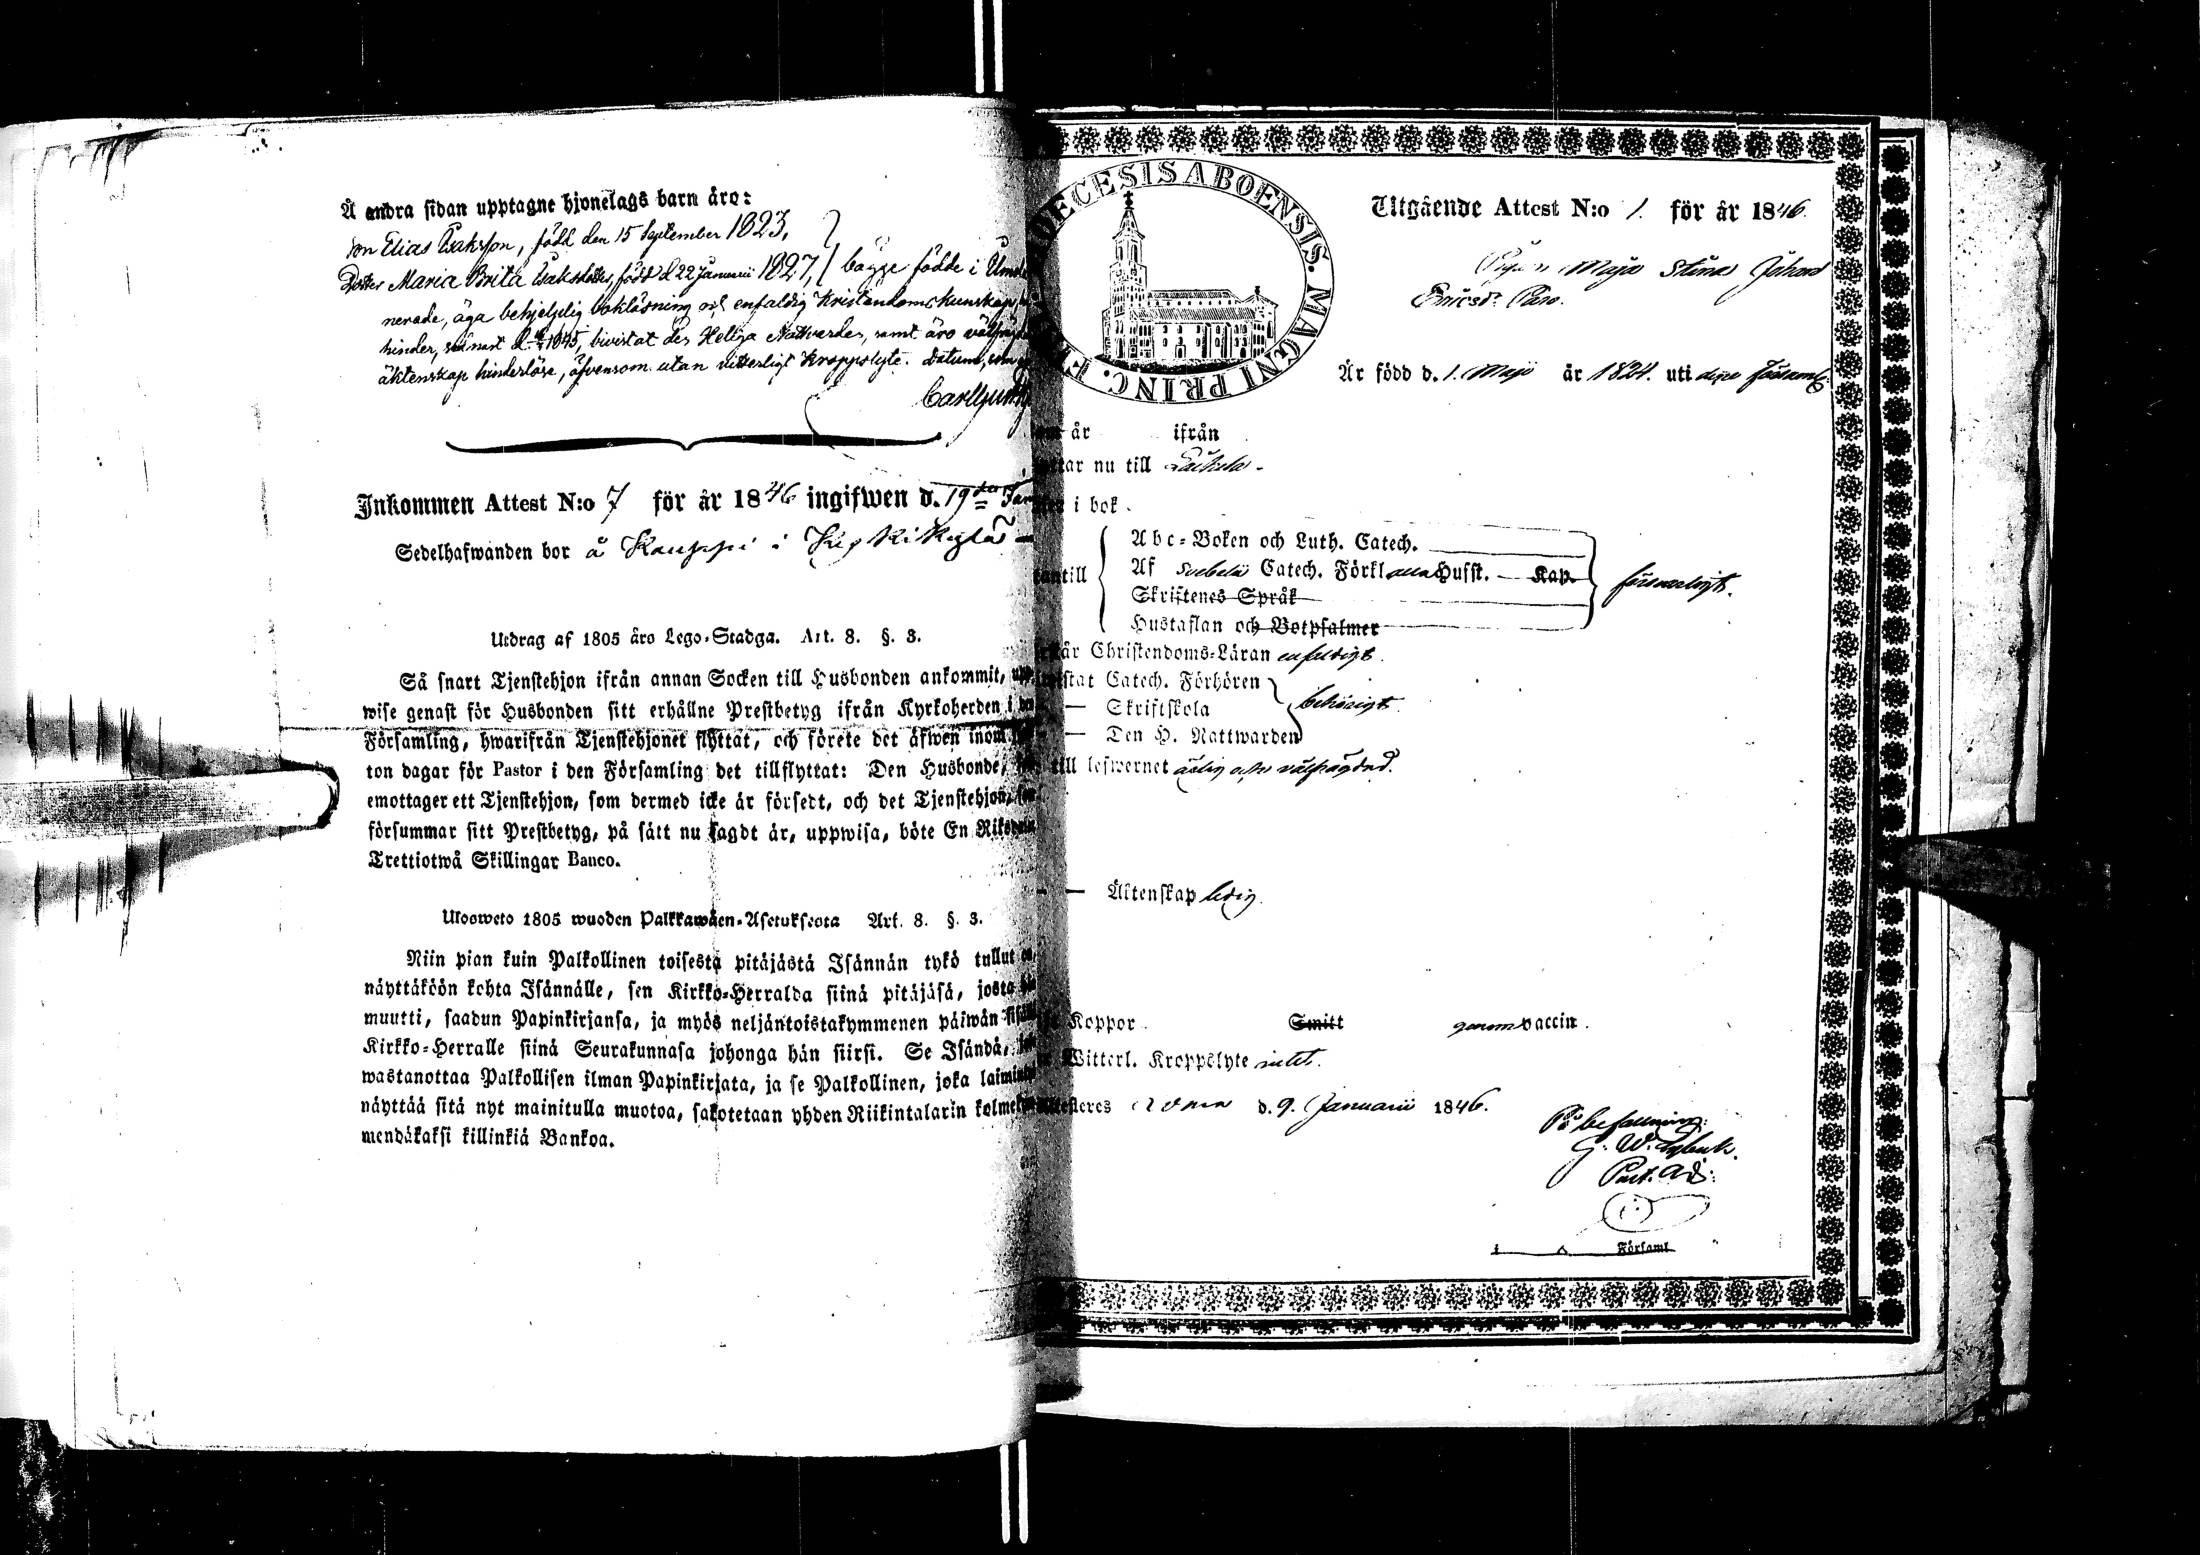 Å andra sidan upptagne hjonelags barn äro:
Son Elias Isaksson, född den 15 September 1823,
Dotter Maria Brita Isaksdotter, född d 22 Januarii 1827, bägge födde i
nerade, äga behjelplig bokläsning och enfaldig Kristendomskunskap,
hinder, senast d. 1845, bivistat den Heliga Nattvarden, samt äro
äktenskap hinderlöse, äfvensom utan witterligt Kroppslyte. Datum, som
Inkommen Attest N:o 7 för år 1846 ingifwen d. 19de Jan
Sedelhafwanden bor å Kauppi i
Utdrag af 1805 års Lego-Stadga. Art. 8. §. 3.
Så snart Tjenstehjon ifrån annan Socken till Husbonden ankommit, upp
wise genast för Husbonden sitt erhållne Prestbetyg ifrån Kyrkoherden i
Församling, hwarifrån Tjenstehjonet flyttat, och förete det äfwen inom
ton dagar för Pastor i den Församling det tillflyttat: Den Husbonde,
emottager ett Tjenstehjon, som dermed icke är försedt, och det Tjenstehjon,
försummar sitt Prestbetyg, på sätt nu sagdt är, uppwisa, böte En Riksdaler
Trettiotwå Skillingar Banco.
Ulosweto 1805 wuoden Palkkawäen-Asetuksesta Art. 8. §. 3.
Niin pian kuin Palkollinen toisesta pitäjästä Isännän tykö tullut on,
näyttäköön kohta Isännälle, sen Kirkko-Herralda siinä pitäjäsä, josta hän
muutti, saadun Papinkirjansa, ja myös neljäntoistakymmenen päiwän
Kirkko-Herralle siinä Seurakunnasa johonga hän siirsi. Se Isändä,
wastanottaa Palkollisen ilman Papinkirjata, ja se Palkollinen, joka
näyttää sitä nyt mainitulla muotoa, sakotetaan yhden Riikintalarin
mendäkaksi killinkiä Bankoa.
DIOECESIS ABOENSIS. MAGNI PRINC. F
Utgående Attest N:o 1. för år 1846.
Pigan Maja Stina Johans
Är född d. 1. Maji år 1824. uti
år ifrån
nu till
i bok.
Abc-Boken och Luth. Catech.
Af Svebelii Catech. Förkl Husst. Kap.
Skriftenes Språk
Hustaflan och Botpsalmer
Christendoms-Läran enfaldigt.
Catech. Förhören
— Skriftskola behörigt.
— Den H. Nattwarden
till lefwernet ärlig och välfrägdad.
— Äktenskap ledig.
Koppor Smitt genom vaccin.
Witterl. Kroppslyte intet.
d. 9. Januarii 1846.
På befallning:
Past. Adj:
i Församl